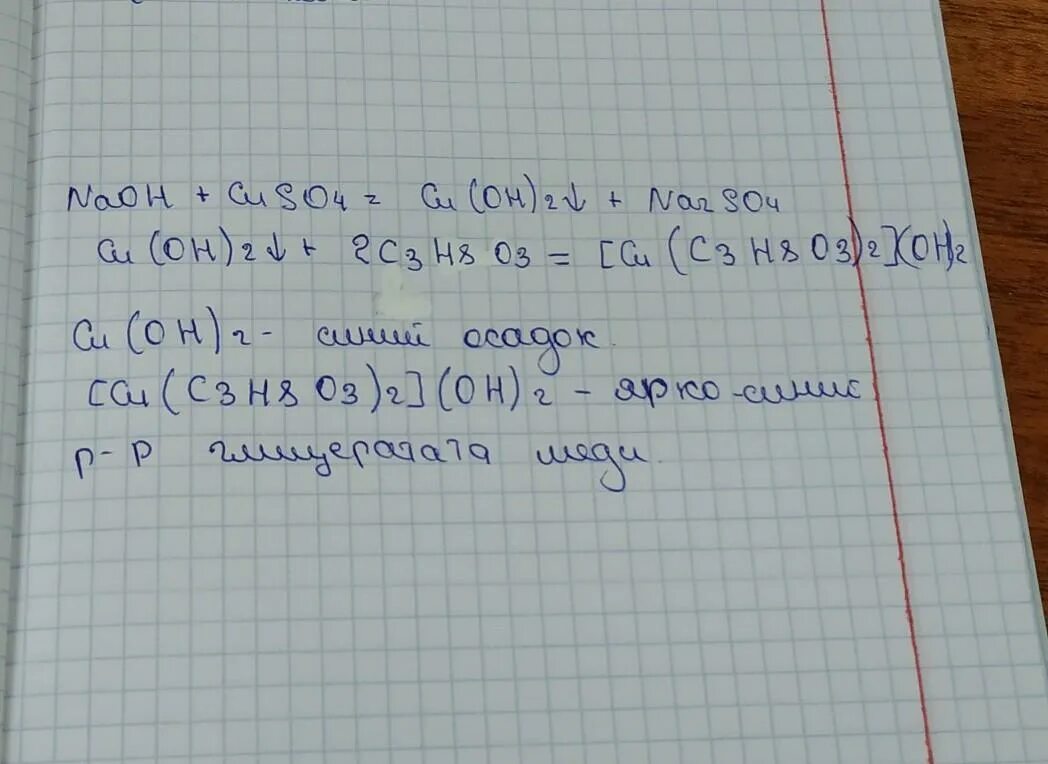 NaOH + CuSO4 = Cu(OH)2↓ + Na2SO4
Cu(OH)2↓ + 2C3H8O3 = [Cu(C3H8O3)2](OH)2
Cu(OH)2 - синий осадок.
[Cu(C3H8O3)2](OH)2 - ярко-синий
р-р глицерата меди.